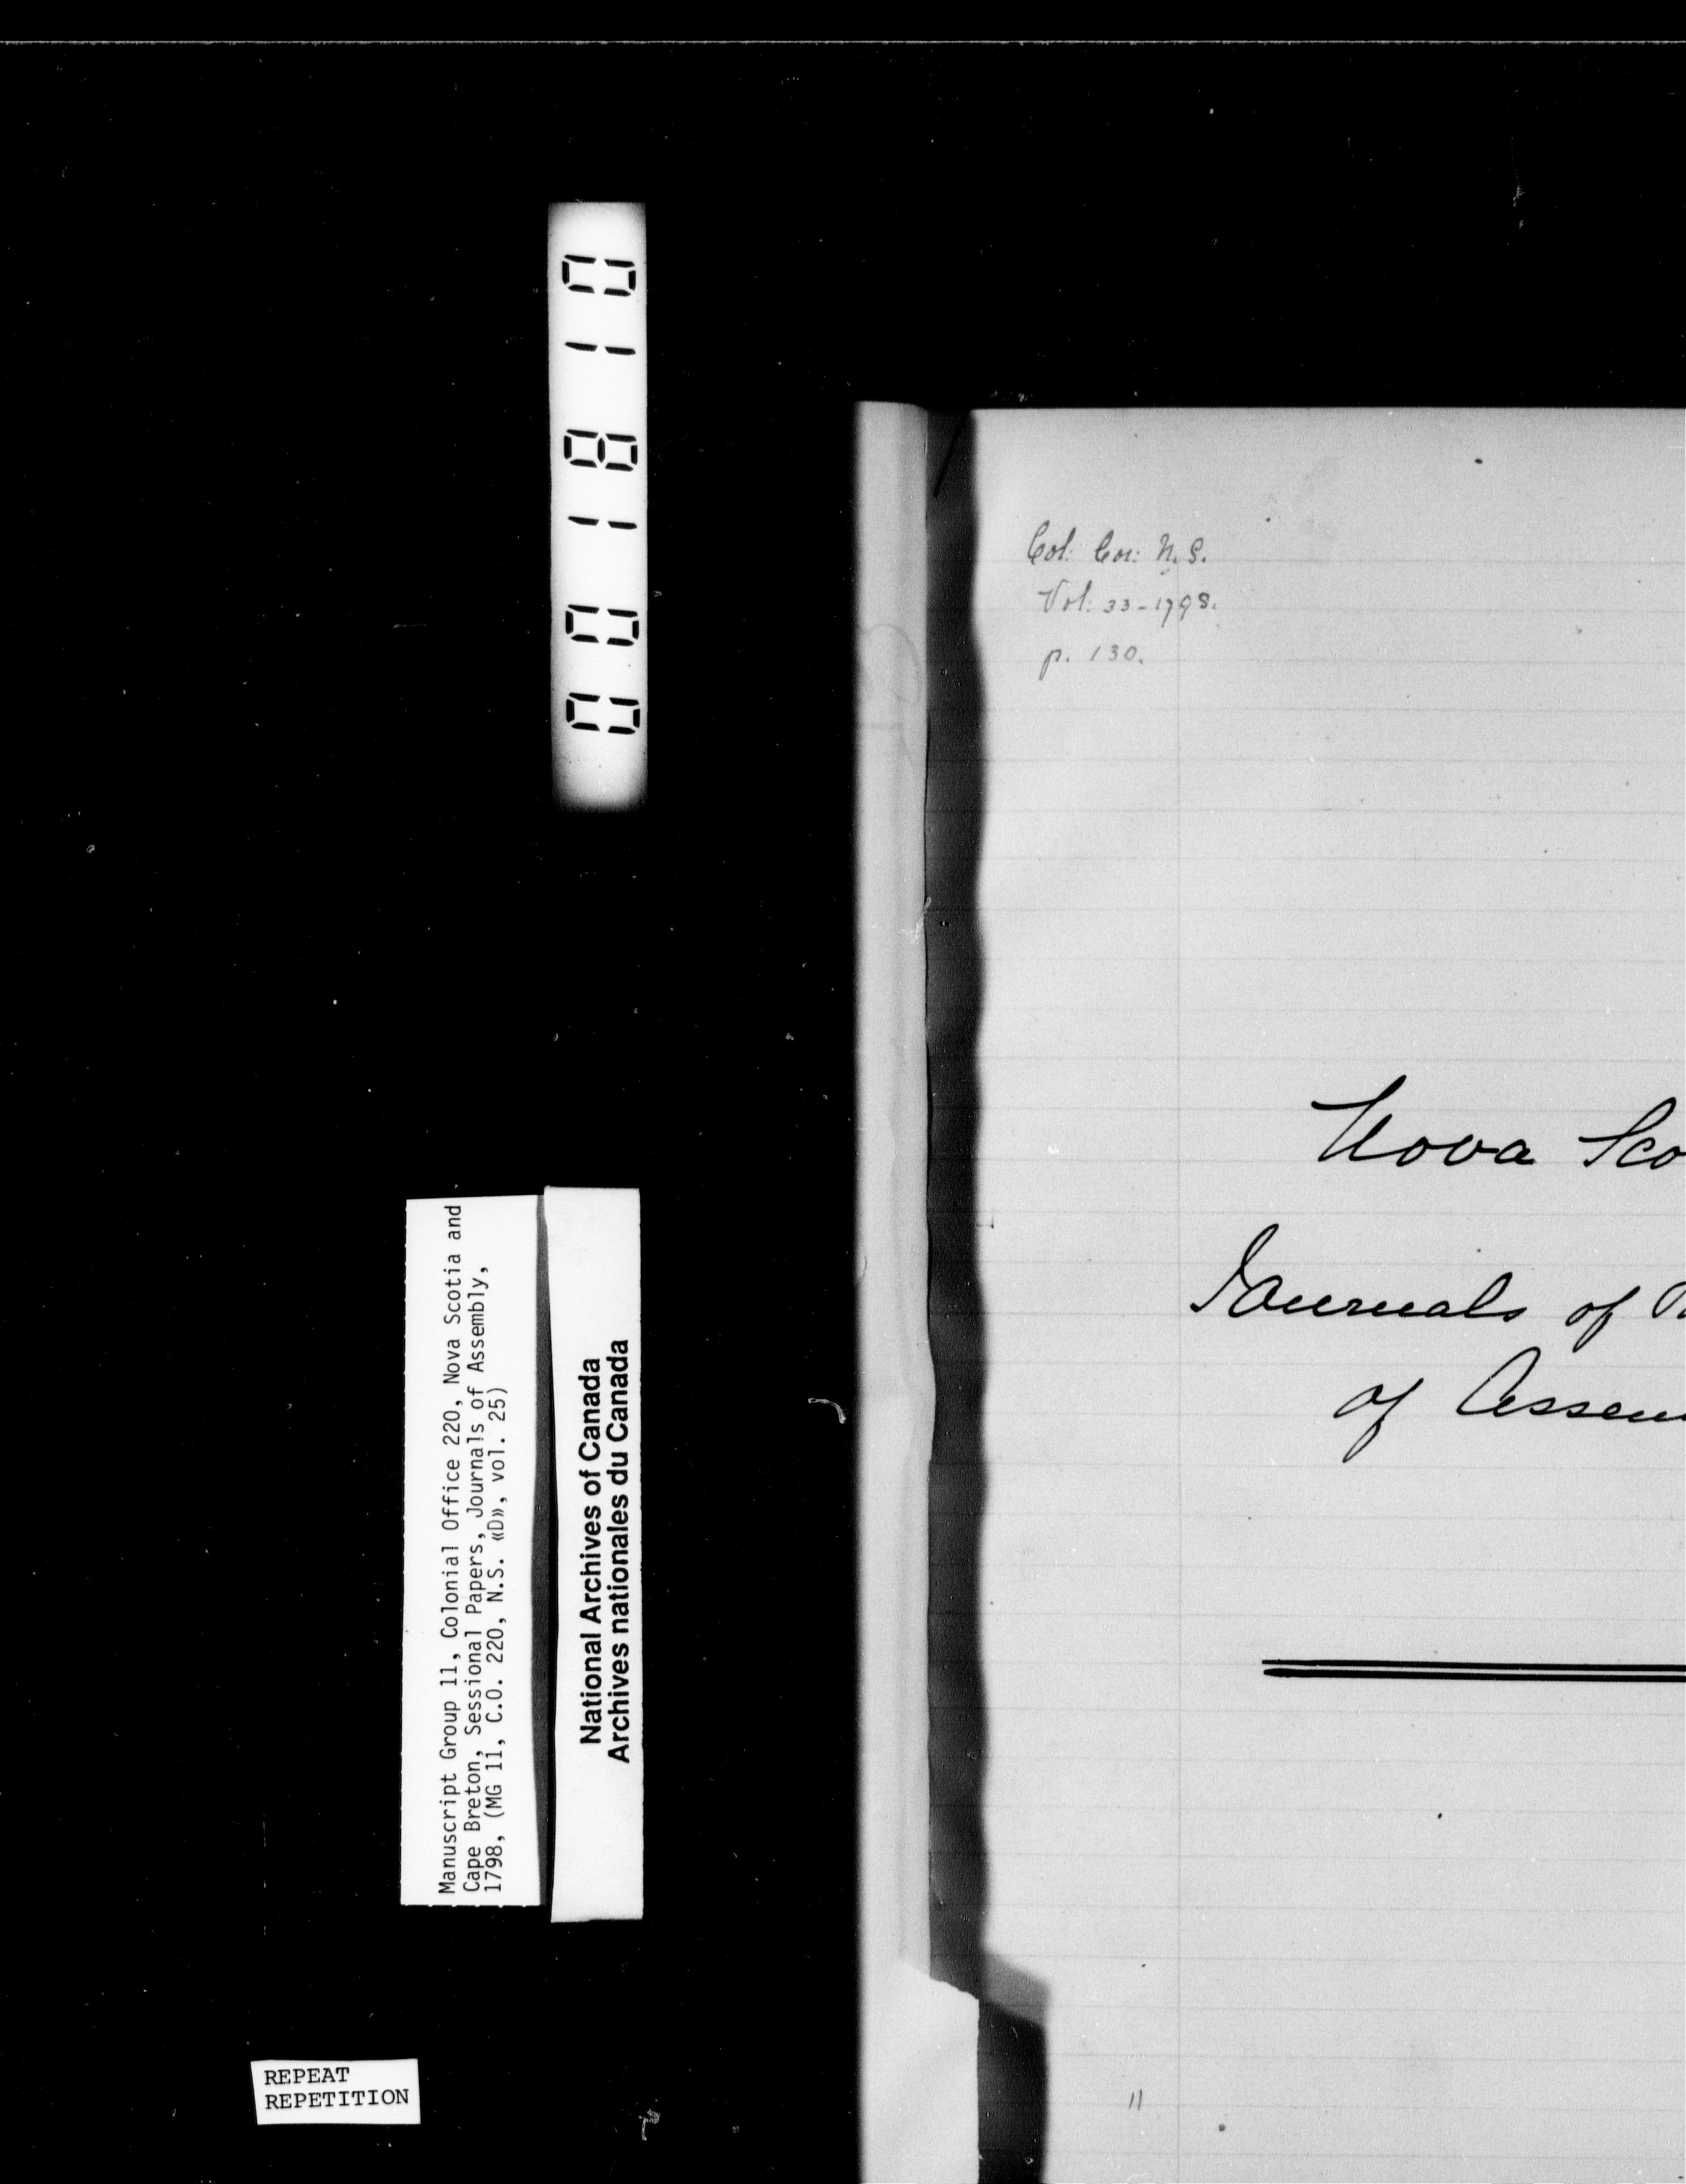 001810
Manuscript Group 11, Colonial Office 220, Nova Scotia and
Cape Breton, Sessional Papers, Journals of Assembly,
1798, (MG 11, C.O. 220, N.S. «D», vol. 25)
National Archives of Canada
Archives nationales du Canada
REPEAT
REPETITION
Col: Cor: N.S.
Vol: 33-1798.
p. 130.
Nova Sco
Journals of
of Assem
11